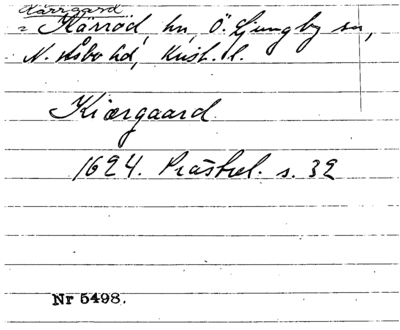 Kärrgård
= Kärröd, hn, Ö. Ljungby sn,
N. Åsbo hd, Krist. l.
Kiærgaard
1624. Prästrel. s. 32
Nr 5498.